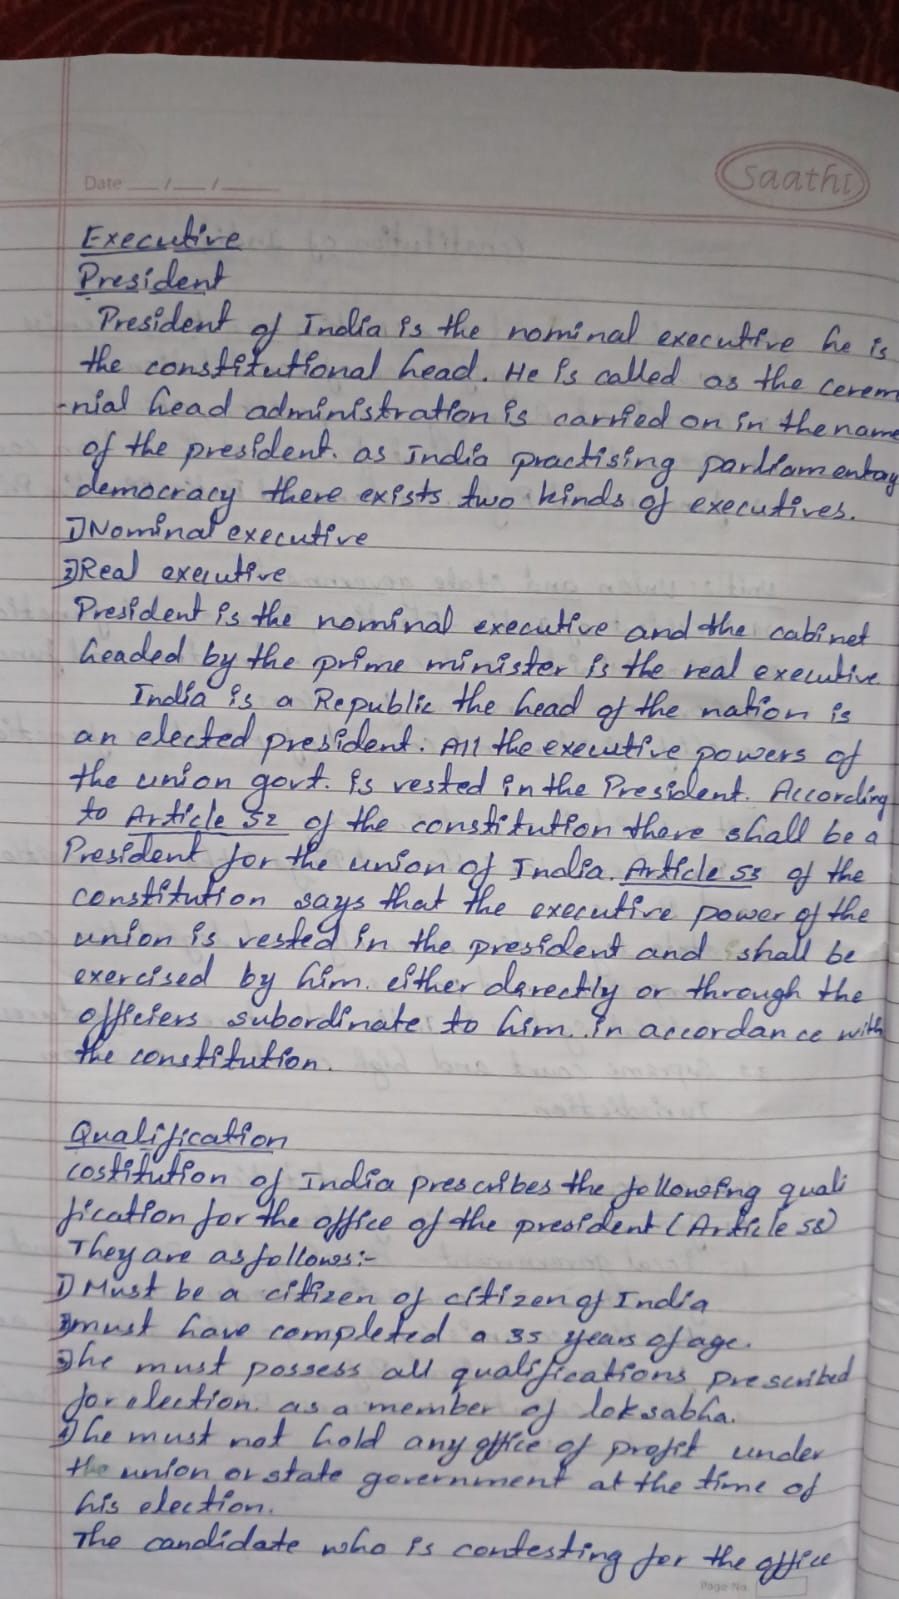 Date __/__/____
Saathi
Executive
President
President of India is the nominal executive he is
the constitutional head. He is called as the cerem
-nial head administration is carried on in the name
of the president. as India practising parliamentay
democracy there exists two kinds of executives.
1) Nominal executive
2) Real executive
President is the nominal executive and the cabinet
headed by the prime minister is the real executive
India is a Republic the head of the nation is
an elected president. All the executive powers of
the union govt. is vested in the President. According
to Article 52 of the constitution there shall be a
President for the union of India. Article 53 of the
constitution says that the executive power of the
union is vested in the president and shall be
exercised by him. either darectly or through the
officiers subordinate to him. in accordance with
the constitution.
Qualification
costitution of India prescribes the following quali
fication for the office of the president (Article 58)
They are as follows:-
1) Must be a citizen of citizen of India
2) must have completed a 35 years of age.
3) he must possess all qualifications prescribed
for election. as a member of loksabha.
4) he must not hold any office of profit under
the union or state government at the time of
his election.
The candidate who is contesting for the office
Page No.